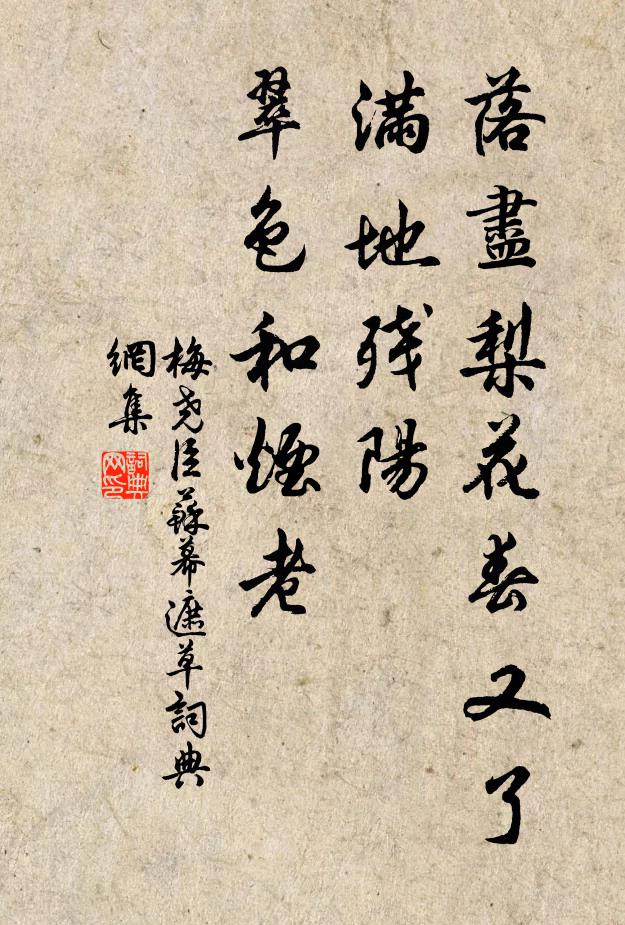 落盡梨花春又了
滿地殘陽
翠色和煙老
梅堯臣蘇幕遮草詞典
網集
詞典網印